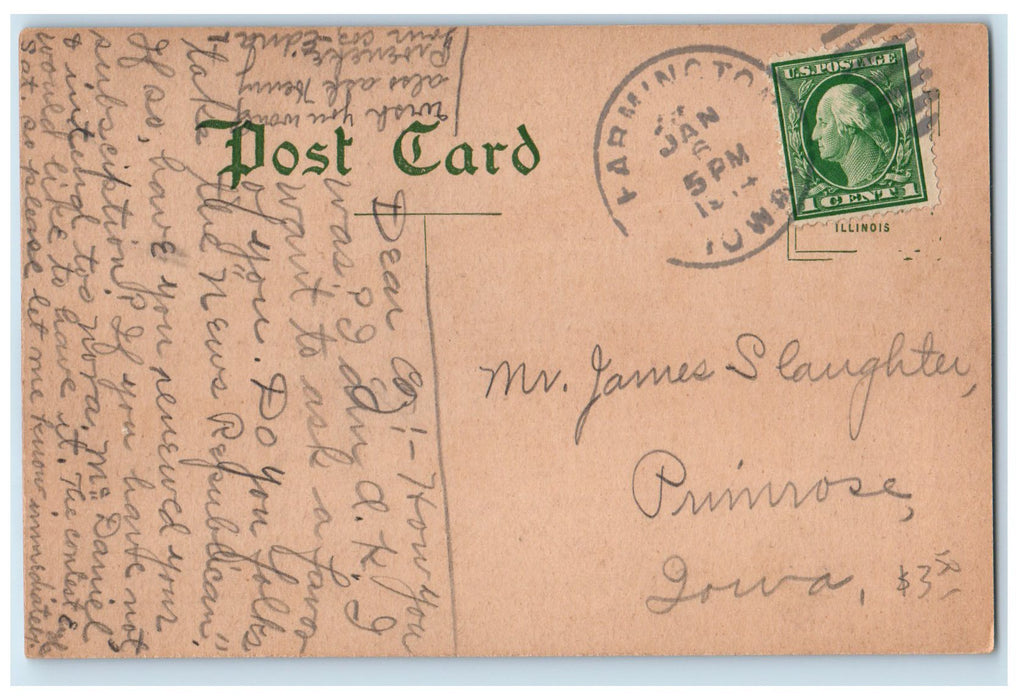 Post Card
U.S. POSTAGE
1 CENT 1
ILLINOIS
FARMINGTON
JAN
6
5 PM
IOWA
Mr. James Slaughter,
Primrose,
Iowa,
Dear :- How you
was? I dm d. k. I
want to ask a favor
of you. Do you folks
take the News Republican",
If so, have you renewed your
subscription? If you have not
& intend to, Mc Daniel
would like to have it. The contest
Sat. so please let me know immediately.
wish you would
also ask Henry
your
$3